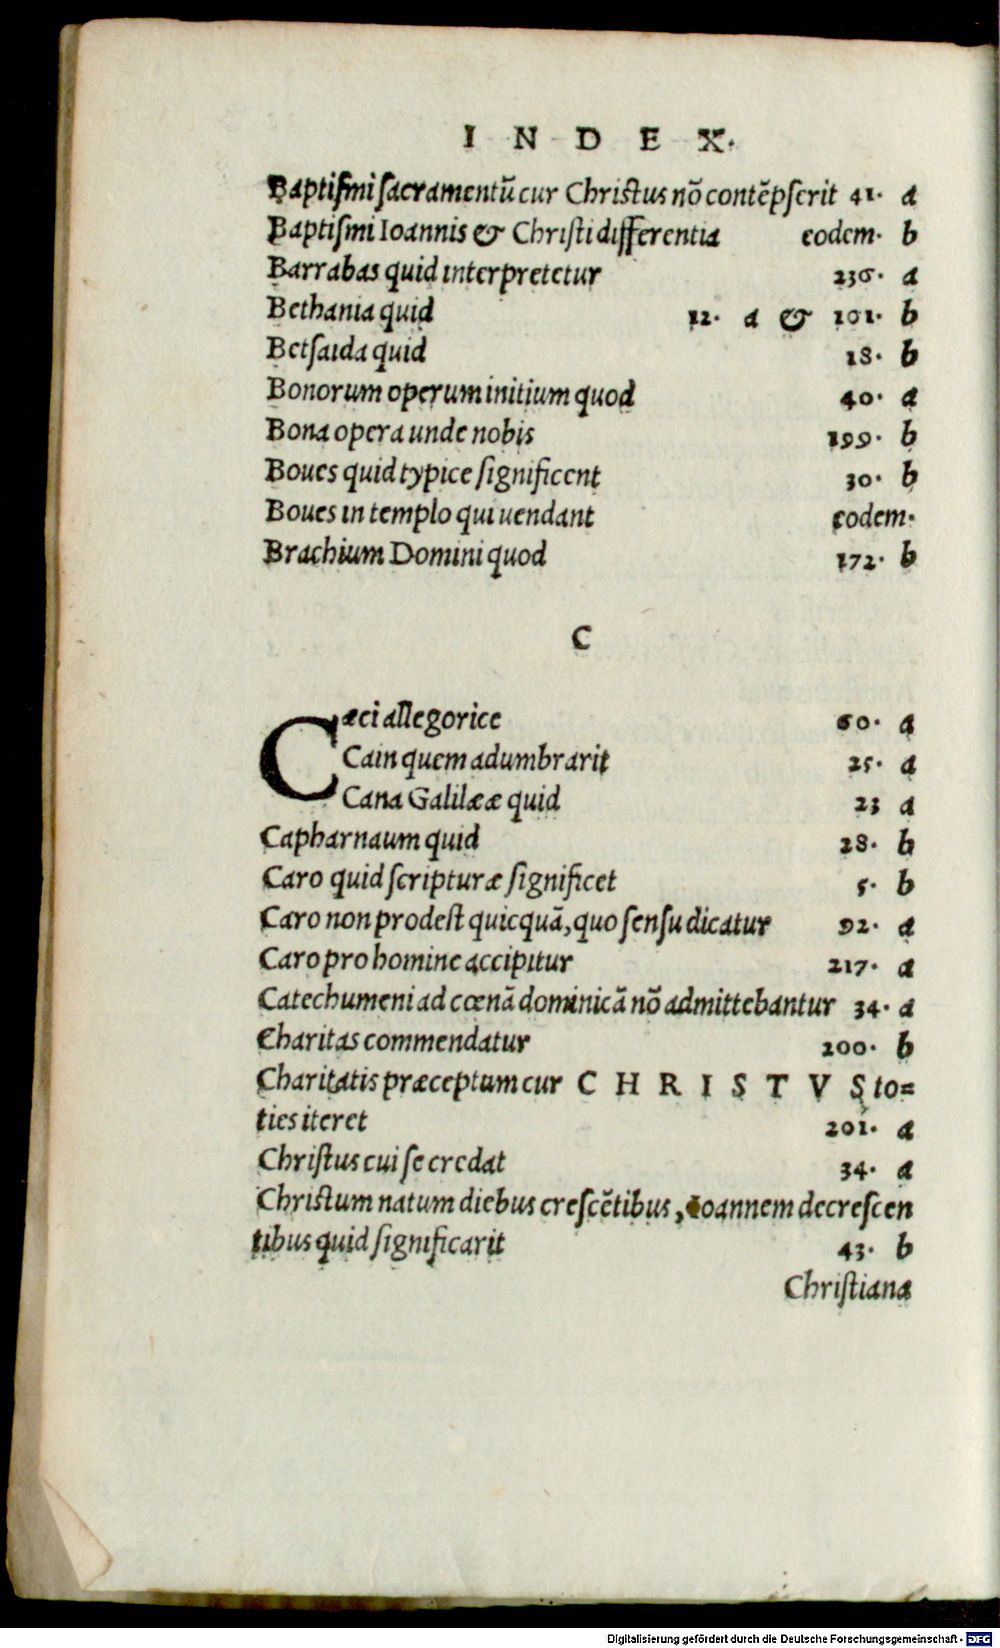 I N D E X.
Baptiſmi ſacramentū cur Chriſtus nō contēpſerit 41. a
Baptiſmi Ioannis & Chriſti differentia eodem. b
Barrabas quid interpretetur 236. a
Bethania quid 12. a & 101. b
Betſaida quid 18. b
Bonorum operum initium quod 40. a
Bona opera unde nobis 199. b
Boues quid typice ſignificent 30. b
Boues in templo qui uendant eodem.
Brachium Domini quod 172. b
C
Cæci allegorice 60. a
Cain quem adumbrarit 25. a
Cana Galilææ quid 23 a
Capharnaum quid 28. b
Caro quid ſcripturæ ſignificet 5. b
Caro non prodeſt quicquā, quo ſenſu dicatur 92. a
Caro pro homine accipitur 217. a
Catechumeni ad cœnā dominicā nō admittebantur 34. a
Charitas commendatur 200. b
Charitatis præceptum cur C H R I S T V S to=
ties iteret 201. a
Chriſtus cui ſe credat 34. a
Chriſtum natum diebus creſcētibus, Ioannem decreſcen
tibus quid ſignificarit 43. b
Chriſtiana
Digitalisierung gefördert durch die Deutsche Forschungsgemeinschaft - DFG